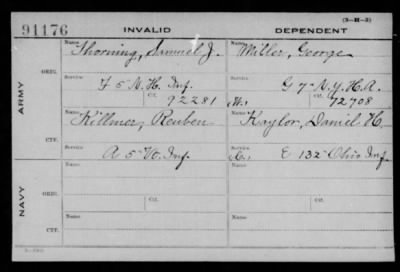 (3-H-3)
91176 INVALID DEPENDENT
Name Name
Thorning, Samuel J. Miller, George
ORIG. Service Service
F 5 N.H. Inf. G 7 N.Y.H.A.
Ctf. Ctf.
92281 72708
ARMY
Name Name
Killmer, Reuben Kaylor, Daniel H.
CTF. Service Service
A 5 Inf. E 132 Ohio Inf.
NAVY
Name Name
ORIG. Service Service
Ctf. Ctf.
Name Name
CTF. Service Service